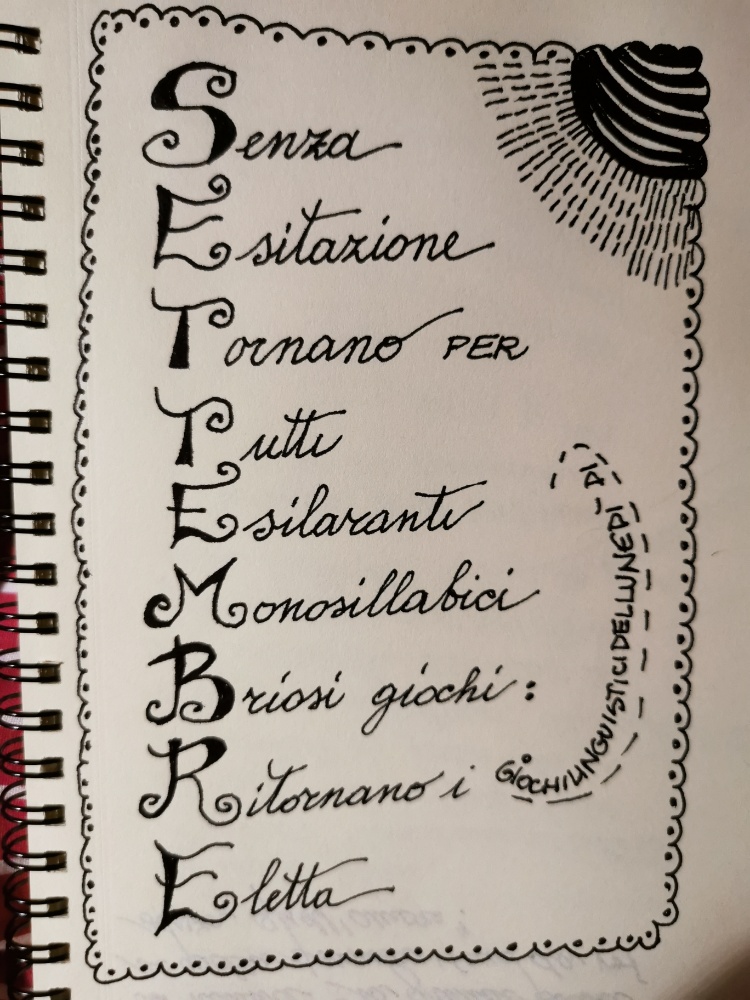 Senza
Esitazione
Tornano PER
Tutti
Esilaranti
Monosillabici
Briosi giochi:
Ritornano i
GIOCHILINGUISTICIDELLUNEDÌ-DI
Eletta